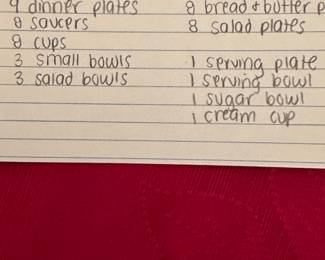 9 dinner plates
8 saucers
8 cups
3 small bowls
3 salad bowls
8 bread & butter
8 salad plates
1 serving plate
1 serving bowl
1 sugar bowl
1 cream cup